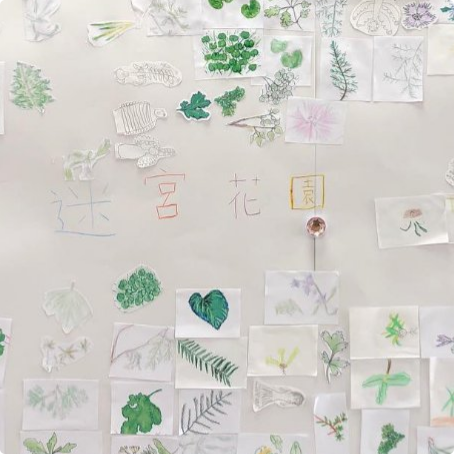 迷宮花園